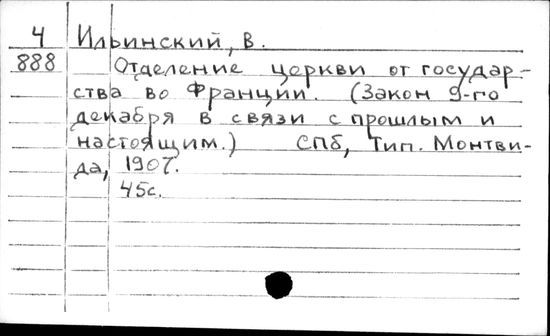 4 Ильинский, В.
888 Отделение церкви от государ-
ства во Франции. (Закон 9-го
декабря в связи с прошлым и
настоящим.) СПб, Тип. Монтви-
да, 1907.
45с.